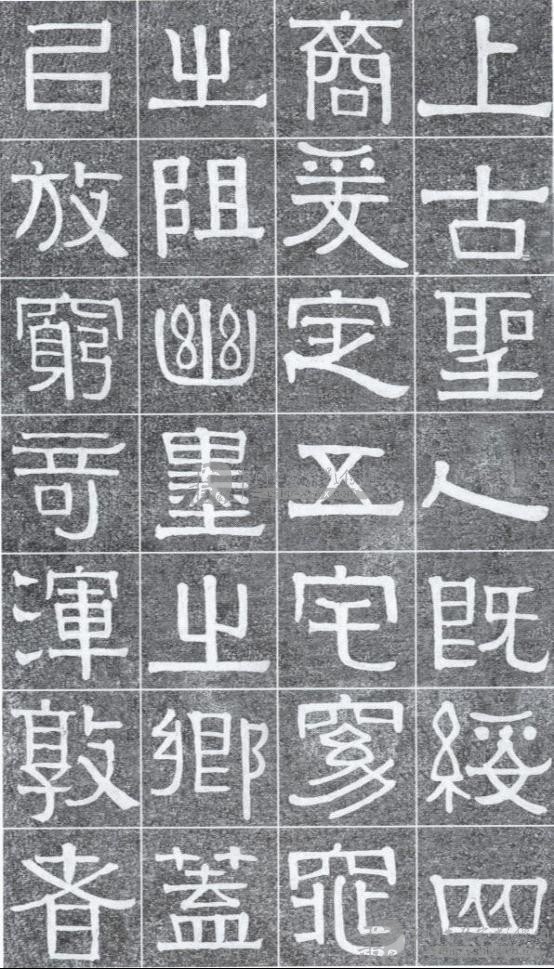 上古聖人既綏四
商爰定五宅窈窕
之阻幽墨之鄉蓋
已放窮奇渾敦者